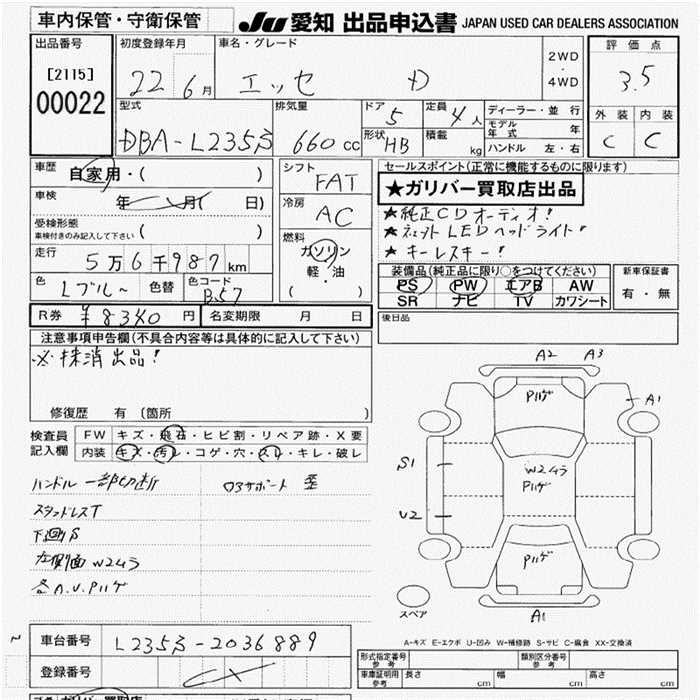 車内保管・守衛保管
JU 愛知 出品申込書 JAPAN USED CAR DEALERS ASSOCIATION
出品番号
[2115]
00022
初度登録年月 22 6月
車名・グレード エッセ D
2WD・4WD
評価点 3.5
外装 内装
C C
型式 DBA-L235S
排気量 660cc
ドア 5
形状 HB
定員 4人
積載 kg
ディーラー・並行
モデル年式 年
ハンドル 左・右
車歴 自家用・( )
車検 年 月( 日)
受検形態
車検付きのみ記入して下さい ( )
走行 5万6千987km
色 Lブルー 色替 色コード B57
シフト FAT
冷房 AC
燃料 ガソリン
軽・油
( )
セールスポイント(正常に機能するものに限ります)
★ガリバー買取店出品
★純正CDオーディオ!
★ LEDヘッドライト!
★キーレスキー!
装備品(純正品に限り○をつけてください)
PS PW エアB AW
SR ナビ TV カワシート
新車保証書
有・無
R券 ¥8340円 名変期限 月 日
後日品
注意事項申告欄(不具合内容等は具体的に記入して下さい)
※抹消出品!
修復歴 有 (箇所 )
検査員記入欄
FW キズ・飛石・ヒビ割・リペア跡・X要
内装 キズ・汚レ・コゲ・穴・スレ・キレ・破レ
ハンドル一部切断 ロアサポート 歪
スタッドレスT
下廻りS
左側面 W2ムラ
各A.U.Pハゲ
A2 A3
Pハゲ
A1
S1
W2ムラ
Pハゲ
U2
Pハゲ
スペア
A1
A-キズ E-エクボ U-凹み W-補修跡 S-サビ C-腐食 XX-交換済
車台番号 L235S-2036889
登録番号
形式指定番号 参考
類別区分番号 参考
車庫証明用 参考 長さ cm 幅 cm 高さ cm
ガリバー買取店